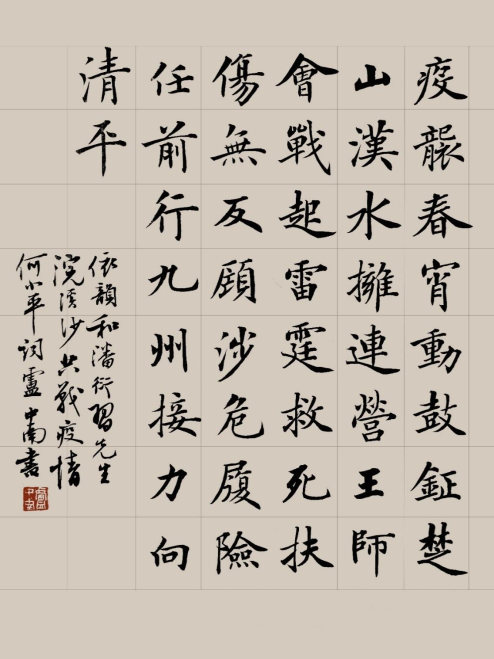 疫襲春宵動鼓鉦楚
山漢水擁連營王師
會戰起雷霆救死扶
傷無反顧涉危履險
任前行九州接力向
清平
依韻和潘衍習先生
浣溪沙共戰疫情
何小平詞盧中南書